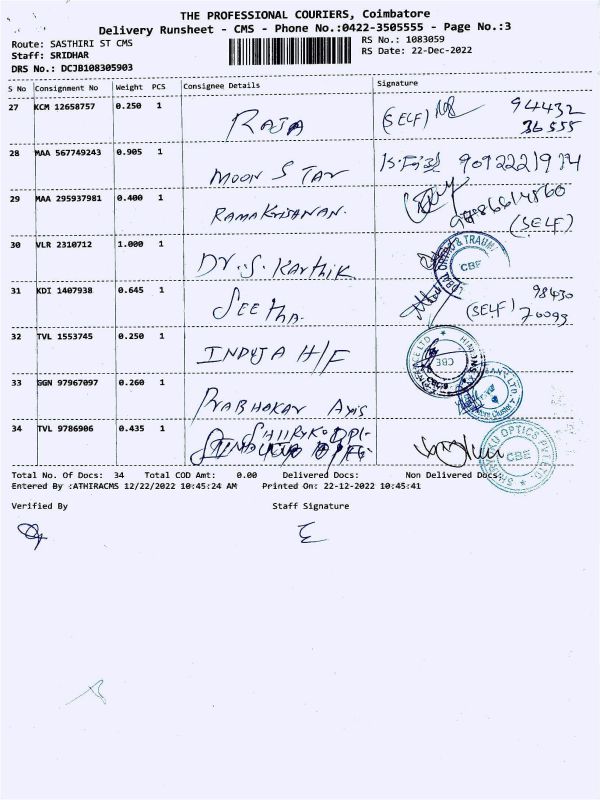 THE PROFESSIONAL COURIERS, Coimbatore
Delivery Runsheet - CMS - Phone No.:0422-3505555 - Page No.:3
Route: SASTHIRI ST CMS
RS No.: 1083059
Staff: SRIDHAR
RS Date: 22-Dec-2022
DRS No.: DCJB108305903
S No Consignment No Weight PCS Consignee Details Signature
27 KCM 12658757 0.250 1 RAJA (SELF) 94432
36555
28 MAA 567749243 0.905 1 MOON STAR
29 MAA 295937981 0.400 1 RAMAKRISHNAN. (SELF)
30 VLR 2310712 1.000 1 Dr.S.Karthik & TRAUMA CBE
31 KDI 1407938 0.645 1 Seetha. (SELF) 98430
70093
32 TVL 1553745 0.250 1 INDUJA H/F CBE
33 GGN 97967097 0.260 1 PRABHAKAR Axis
34 TVL 9786906 0.435 1 OPTICS PVT LTD CBE
Total No. Of Docs: 34 Total COD Amt: 0.00 Delivered Docs: Non Delivered Docs:
Entered By :ATHIRACMS 12/22/2022 10:45:24 AM Printed On: 22-12-2022 10:45:41
Verified By Staff Signature